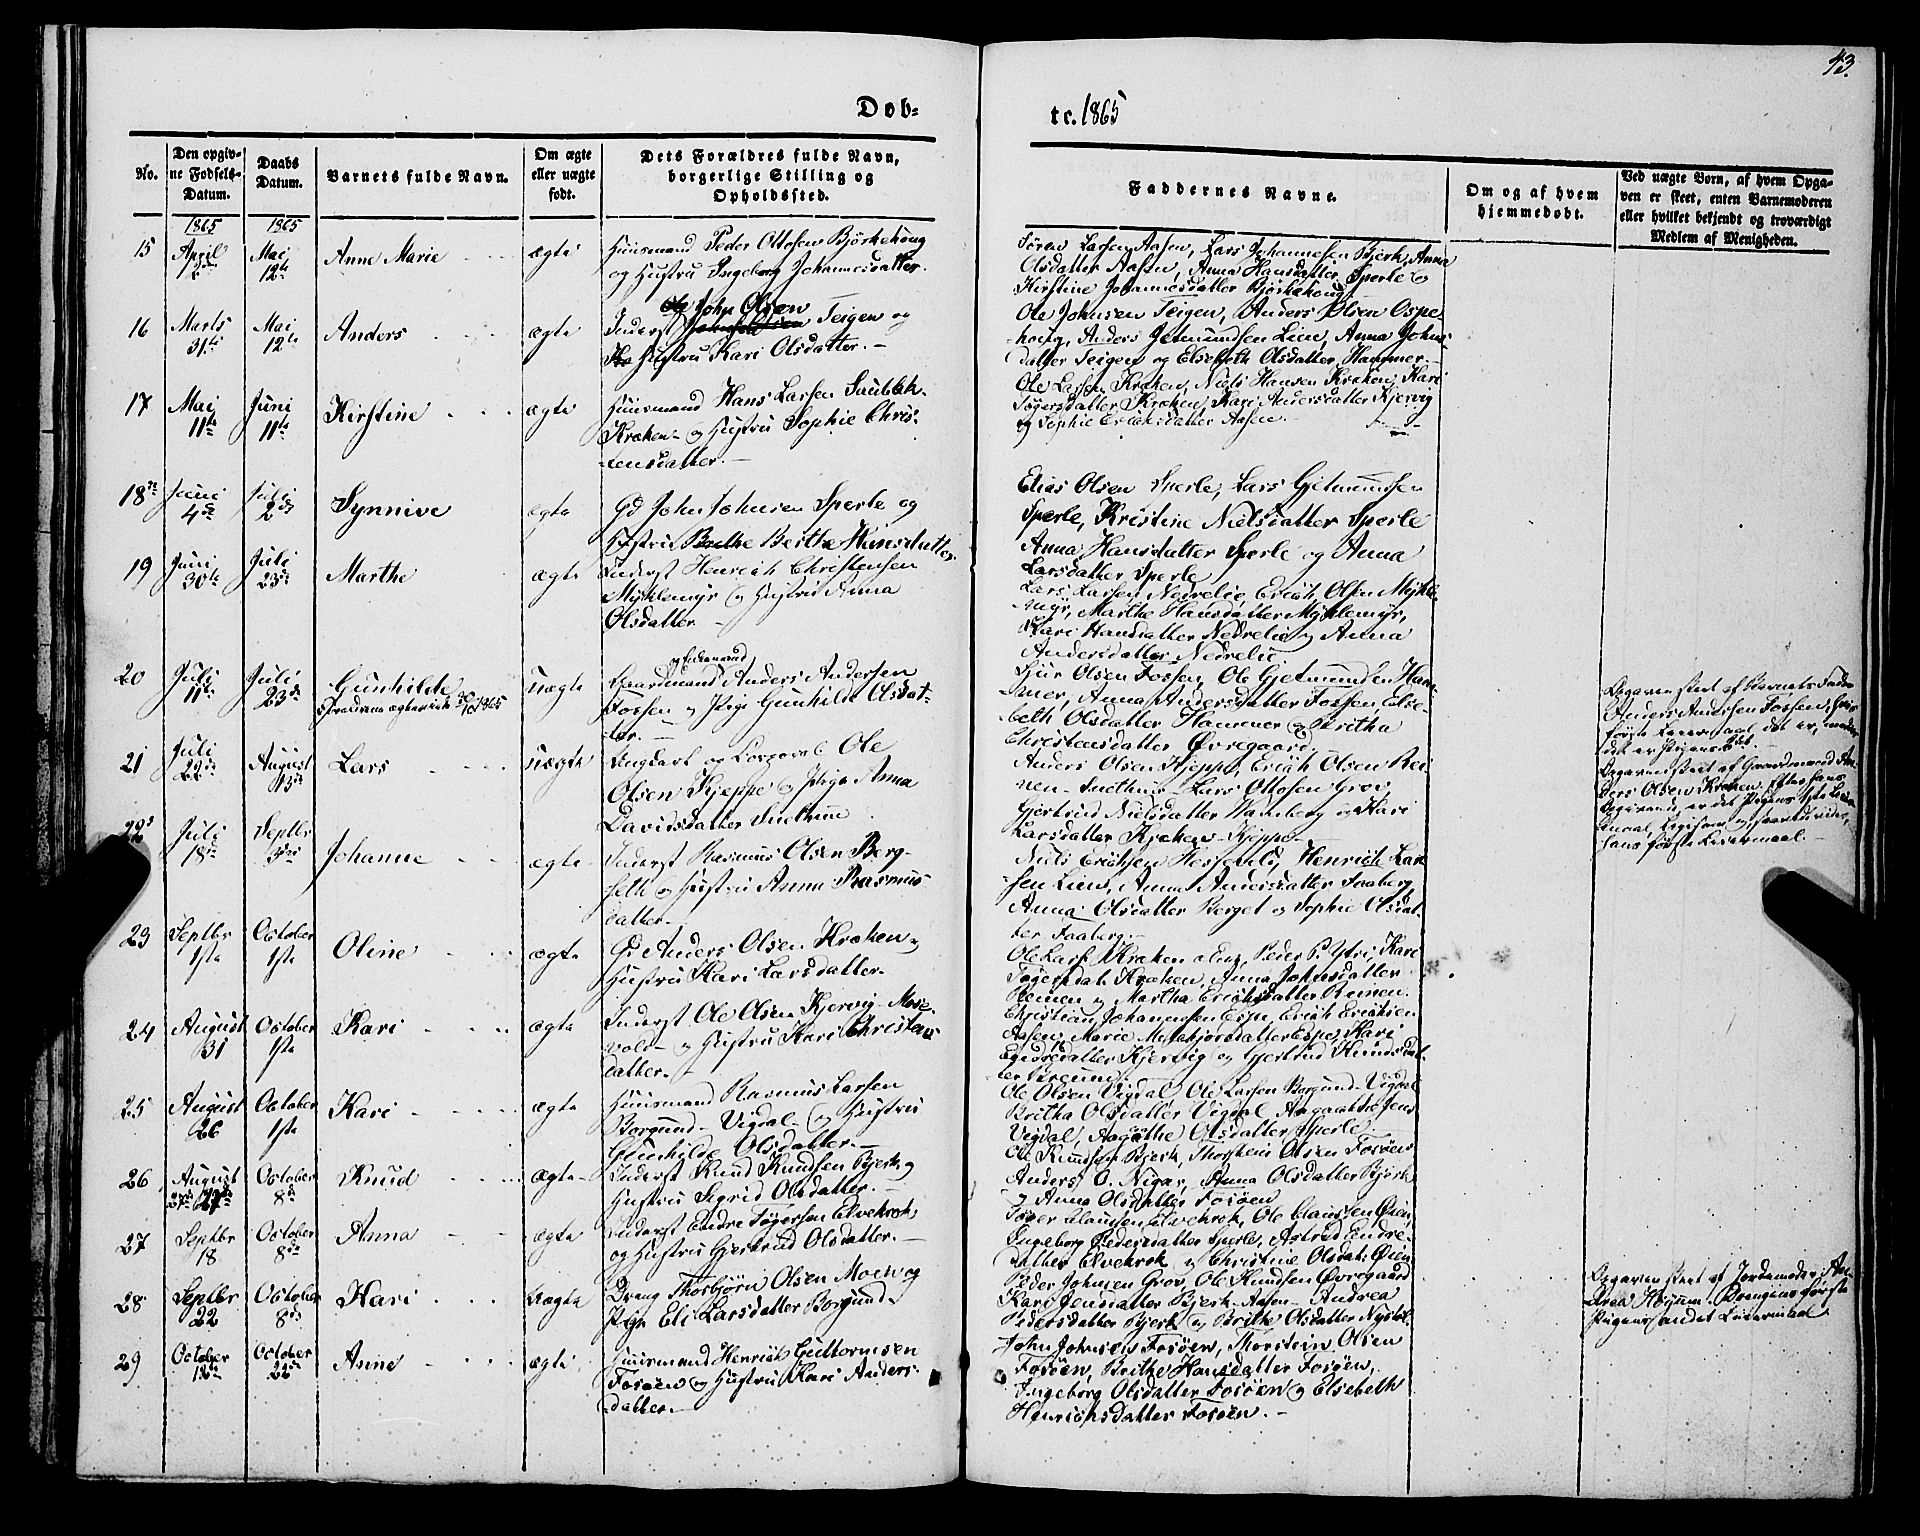 43.
Døb=
te. 1865
No.
Den opgiv-
ne Fødsels-
Datum.
Daabs
Datum.
Barnets fulde Navn.
Om ægte
eller uægte
født.
Dets Forældres fulde Navn,
borgerlige Stilling og
Opholdssted.
Faddernes Navne.
Om og af hvem
hjemmedøbt.
Ved uægte Børn, af hvem Opga-
ven er skeet, enten Barnemoderen
eller hvilket bekjendt og troværdigt
Medlem af Menigheden.
1865 1865
15 April Mai 12te Anne Marie ægte
Huusmand Peder Ottosen Bjørkehoug
og Hustru Ingeborg Johannesdatter.
Søren Larsen Aasen, Lars Johannesen Bjerk, Anna
Olsdatter Aasen, Anna Hansdatter Sperle og
Kirstine Johannesdatter Bjørkehoug
16 Marts 31te Mai 12te Anders ægte
John Olsen
Inderst Teigen og
Hustru Kari Olsdatter.-
Ole Johnsen Teigen, Anders Olsen Ospe
houg, Anders Jetmundsen Lien, Anna Johns-
datter Teigen og Elsebeth Olsdatter Hammer.-
17 Mai 11te Juni 11te Kirstine ægte
Huusmand Hans Larsen
Kroken- og Hustru Sophie Chris-
tensdatter.-
Ole Larsen Kroken, Niels Hansen Kroken, Kari
Tøgersdatter Kroken, Kari Andersdatter Kjervig
og Sophie Erichsdatter Aasen.
18 Juni 4de Juli 2den Synnive ægte
Gd John Johnsen Sperle og
Hustru Berthe Hansdatter
Elias Olsen Sperle, Lars Gjetmundsen
Sperle, Kristine Nielsdatter Sperle
Anna Hansdatter Sperle og Anna
Larsdatter Sperle
19 Juni 30te Juli 23de Marthe ægte
Inderst Henrich Christensen
Myklemyr og Hustru Anna
Olsdatter -
Lars Larsen Nedrelie, Erich Olsen Mykle-
myr, Marthe Hansdatter Myklemyr,
Kari Hansdatter Nedrelie og Anna
Andersdatter Nedrelie
20 Juli 11te Juli 23de Gunhilde uægte
Gaardmand Anders Andersen
Fossen og Pige Gunhilde Olsdat-
ter.-
Sjur Olsen Fossen, Ole Gjetmundsen Ham-
mer, Anna Andersdatter Fossen, Else-
beth Olsdatter Hammer og Britha
Christensdatter Øvregaard.
Opgaven skeet af Barnets Fader
Anders Andersen Fossen,
første Leiermaal, det er,
det er Pigens
21 Juli 22de August 13de Lars uægte
Ungkarl og Ole
Olsen Kjeppe og Pige Anna
Davidsdatter
Anders Olsen Kjeppe, Erich Olsen Rei-
nen Lars Ottosen Grov,
Gjertrud Nielsdatter og Kari
Larsdatter Kroken-Kjeppe-
Opgaven skeet af Gaardmand An-
ders Olsen Kroken. Efter hans
Opgivende er det Pigens 1ste Leier-
maal,
hans første Leiermaal.-
22 Juli 18de Septbr 3die Johanne ægte
Inderst Rasmus Olsen Berg-
seth og Hustru Anna Rasmus-
datter.-
Niels Erichsen Hesjevold, Henrich Lar-
sen Lien, Anna Andersdatter Faaberg,
Anna Olsdatter Berget og Sophie Olsdat-
ter Faaberg.-
23 Septbr 1ste October 1ste Oline ægte
Gd Anders Olsen Kroken og
Hustru Kari Larsdatter.
Ole Lars. Kroken Peder P. Ytri, Kari
Tøgersdat. Kroken, Anna Johnsdatter
Reinen og Martha Erichsdatter Reinen.
24 August 31 October 1ste Kari ægte
Inderst Ole Olsen Kjervig-Mose-
vold- og Hustru Kari Christens-
datter.-
Christian Johannesen Espe, Erich Erichsen
Aasen, Marie Espe, Kari
Endresdatter Kjervig og Gjertrud Knudsdat-
ter
25 August 26 October 1ste Kari ægte
Huusmand Rasmus Larsen
Borgund-Vigdal- og Hustru
Gunhilde Olsdatter.-
Ole Olsen Vigdal, Ole Larsen Borgund-Vigdal
Britha Olsdatter Vigdal, Jens
Vigdal, Aagothe Olsdatter Sperle.
26 August 27de October 8de Knud ægte
Inderst Knud Knudsen Bjerk og
Hustru Sigrid Olsdatter.-
Ole Knudsen Bjerk, Thorstein Olsen Fosøen
Anders O. Nigar, Anna Olsdatter Bjerk
og Anna Olsdatter Fosøen
27 Septbr 18 October 8de Anna ægte
Inderst Endre Tøgersen Elvekrok
og Hustru Gjertrud Olsdatter.-
Tøger Claussen Elvekrok, Ole Claussen Øien,
Ingeborg Pedersdatter Sperle, Astrid Endre-
datter Elvekrok og Christine Olsdat. Øien
28 Septbr 22 October 8de Kari uægte
Dreng Thorbjørn Olsen Moen og
Pige Eli Larsdatter Borgund-
Peder Johnsen Grov, Ole Knudsen Øvregaard
Kari Jensdatter Bjerk-Aasen- Andrea
Pedersdatter Bjerk og Brithe Olsdatter
Opgaven skeet af Jordemoder An-
drea Drengens første
Pigens andet Leiermaal
29 October 12te October 22de Anne ægte
Huusmand Henrich Guttormsen
Fosøen og Hustru Kari Anders-
datter.-
John Johnsen Fosøen, Thorstein Olsen
Fosøen, Brithe Hansdatter Fosøen,
Ingeborg Olsdatter Fosøen og Elsebeth
Henrichsdatter Fosøen.-